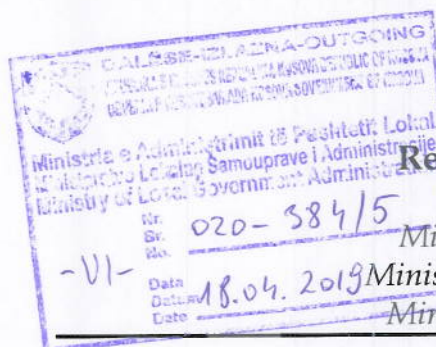 DALËSE-IZLAZNA-OUTGOING
Ministria e Administrimit të Pushtetit Lokal
Ministarstvo Lokalne Samouprave i Administracije
Ministry of Local Government Administration
Re
Nr.
Br.
No.
020-384/5
-VI-
Data
Datum
Date
18.04.2019
Mi
Minis
Min